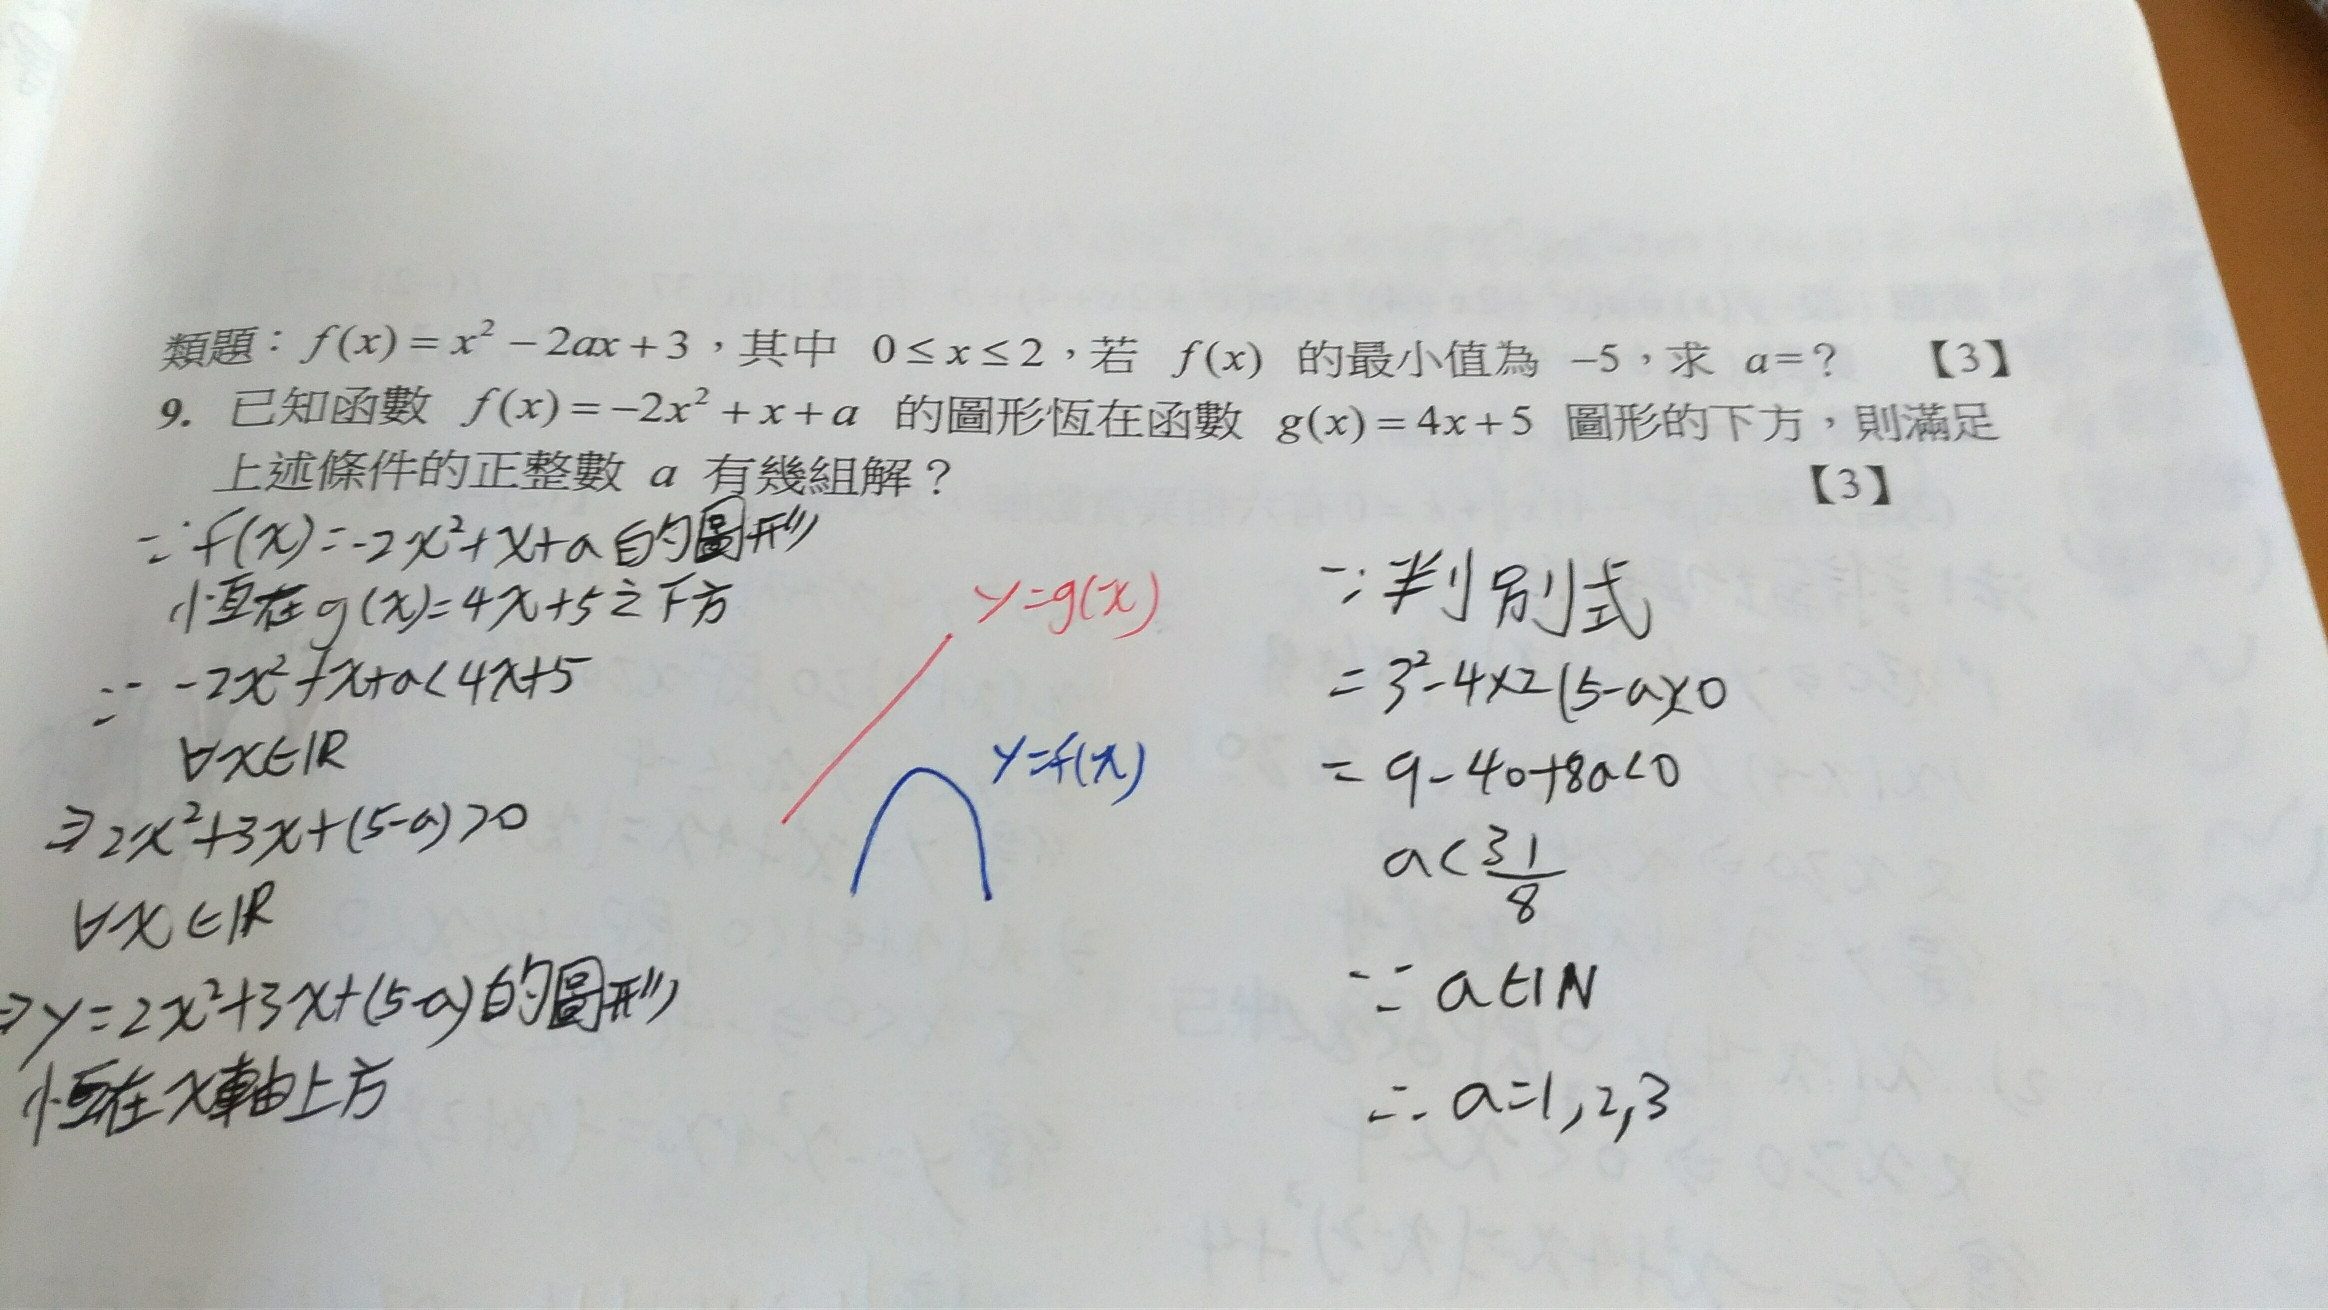 類題：f(x)=x²−2ax+3，其中 0≤x≤2，若 f(x) 的最小值為 −5，求 a=？ 【3】
9. 已知函數 f(x)=−2x²+x+a 的圖形恆在函數 g(x)=4x+5 圖形的下方，則滿足
上述條件的正整數 a 有幾組解？ 【3】
∵f(x)=-2x²+x+a的圖形
恆在g(x)=4x+5之下方
∴ -2x²+x+a<4x+5
∀x∈ℝ
⇒2x²+3x+(5-a)>0
∀x∈ℝ
⇒y=2x²+3x+(5-a)的圖形
恆在x軸上方
y=g(x)
y=f(x)
∵判別式
=3²-4×2(5-a)<0
=9-40+8a<0
a<31/8
∵a∈ℕ
∴a=1,2,3